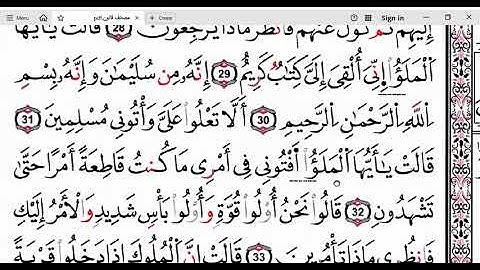 مصحف قالون.pdf
Create
Sign in
إِلَيْهِمْ ثُمَّ تَوَلَّ عَنْهُمْ فَانظُرْ مَاذَا يَرْجِعُونَ 28 قَالَتْ يَا أَيُّهَا
اَلْمَلَؤُاْ اِنِّيَ أُلْقِيَ إِلَيَّ كِتَابٌ كَرِيمٌ 29 إِنَّهُ مِن سُلَيْمَانَ وَإِنَّهُ بِسْمِ
اِللَّهِ اِلرَّحْمَانِ اِلرَّحِيمِ 30 أَلَّا تَعْلُواْ عَلَيَّ وَأْتُونِي مُسْلِمِينَ 31
قَالَتْ يَا أَيُّهَا اَلْمَلَؤُاْ اَفْتُونِي فِي أَمْرِي مَا كُنتُ قَاطِعَةً أَمْرًا حَتَّى
تَشْهَدُونِ 32 قَالُواْ نَحْنُ أُوْلُواْ قُوَّةٍ وَأُوْلُواْ بَأْسٍ شَدِيدٍ وَالْأَمْرُ إِلَيْكِ
فَانظُرِي مَاذَا تَأْمُرِينَ 33 قَالَتْ إِنَّ اَلْمُلُوكَ إِذَا دَخَلُواْ قَرْيَةً